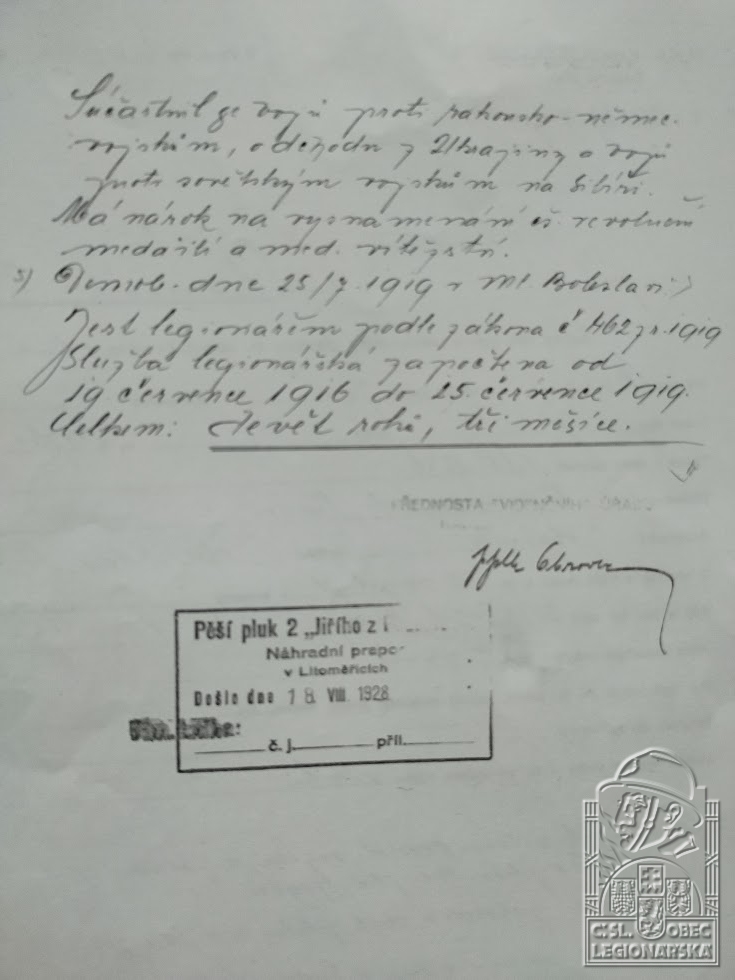 Súčastnil se bojů proti rakousko-němec.
vojskům, odchodu z Ukrajiny a bojů
proti sovětským vojskům na Sibiři.
Má nárok na vyznamenání čs. revoluční
medailí a med. vítězství.
5) Demob. dne 25/7. 1919 v Ml. Boleslavi.
Jest legionářem podle zákona č 462 z r. 1919
Služba legionářská započtena od
19 července 1916 do 25. července 1919.
Celkem: devět roků, tři měsíce.
PŘEDNOSTA EVIDENČNÍHO ÚŘADU
pplk
Pěší pluk 2 „Jiřího z
Náhradní prapor
v Litoměřicích
Došlo dne 18. VIII. 1928
č. j. příl.
Č:SL. OBEC
LEGIONÁŘSKÁ